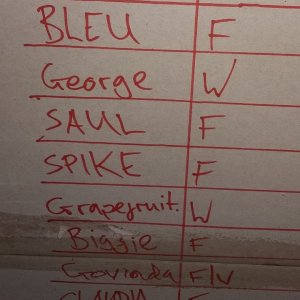 BLEU F
George W
SAUL F
SPIKE F
Grapefruit. W
Biggie F
Govinda F/V
CLAUDIA